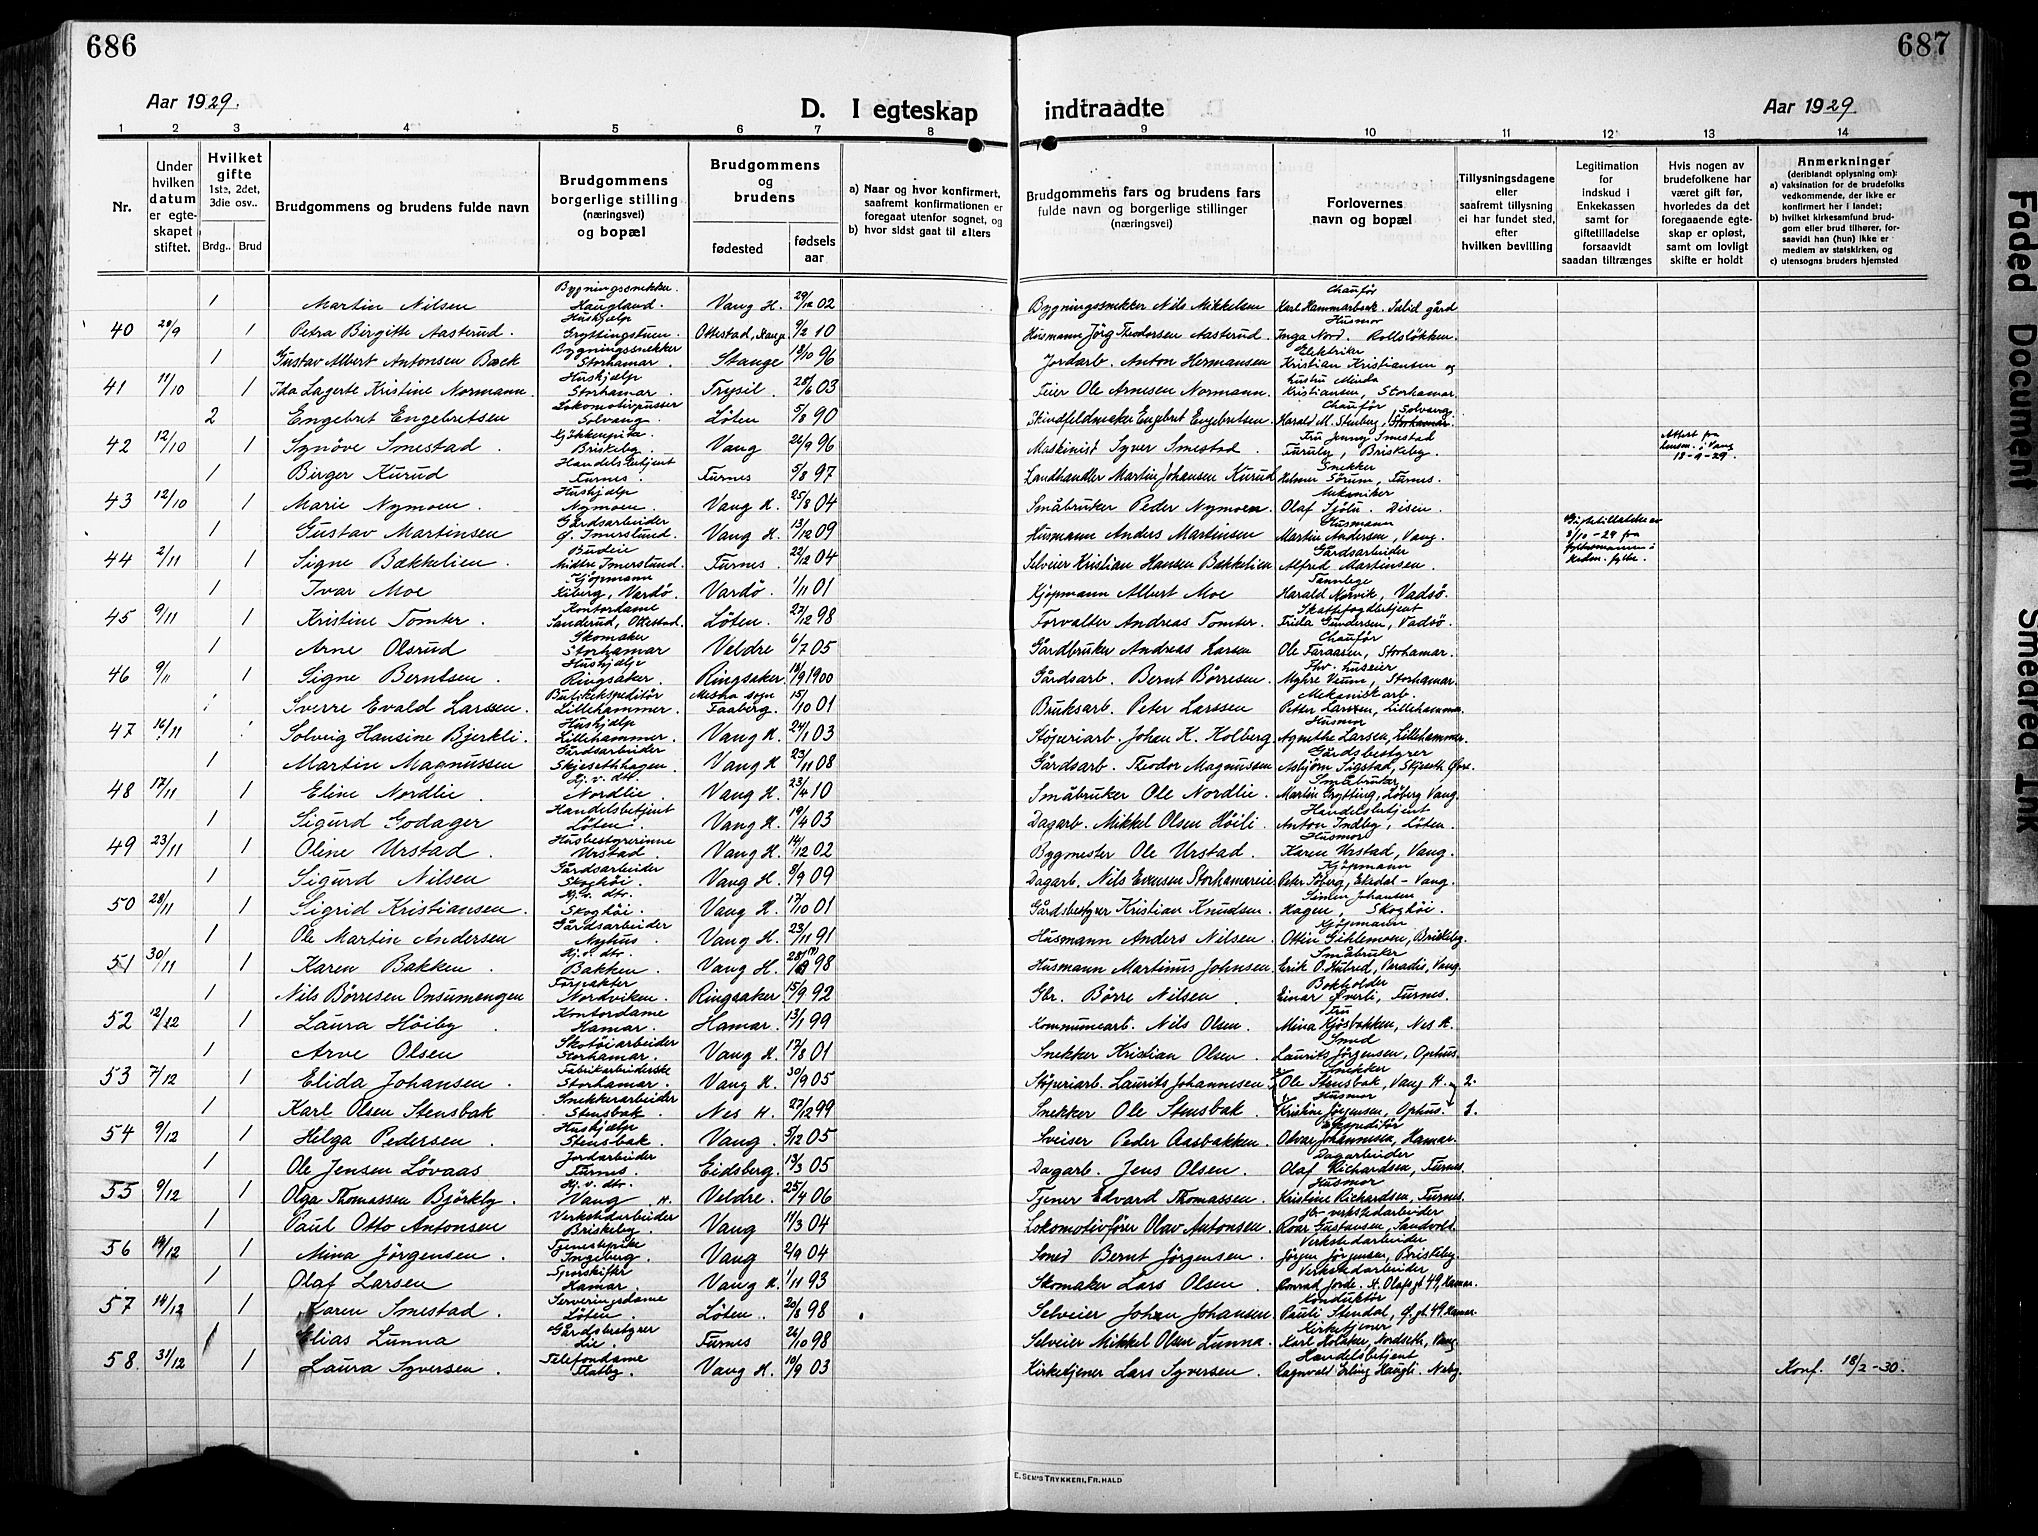 686
687
Aar 1929.
D. I egteskap indtraadte
Aar 1929.
1 2 3 4 5 6 7 8 9 10 11 12 13 14
Nr.
Under hvilken datum er egteskapet stiftet.
Hvilket gifte 1ste, 2det, 3die osv..
Brdg.. Brud
Brudgommens og brudens fulde navn
Brudgommens borgerlige stilling (næringsvei) og bopæl
Brudgommens og brudens
fødested
fødsels aar
a) Naar og hvor konfirmert, saafremt konfirmationen er foregaat utenfor sognet, og
b) hvor sidst gaat til alters
Brudgommens fars og brudens fars fulde navn og borgerlige stillinger (næringsvei)
Forlovernes navn og bopæl
Tillysningsdagene eller saafremt tillysning ei har fundet sted, efter hvilken bevilling
Legitimation for indskud i Enkekassen samt for giftetilladelse forsaavidt saadan tiltrænges
Hvis nogen av brudefolkene har været gift før, hvorledes da det foregaaende egteskap er opløst, samt om lovligt skifte er holdt
Anmerkninger (deriblandt oplysning om):
a) vaksination for de brudefolks vedkommende, der ikke er konfirmert her i landet;
b) hvilket kirkesamfund brudgom eller brud tilhører, forsaavidt han (hun) ikke er medlem av statskirken, og
c) utensogns bruders hjemsted
1 Martin Nilsen Bygningssnekker. Haugland. Vang H. 29/12 02 Bygningssnekker Nils Mikkelsen Chauför Karl Hammarbæck. Salid gård
40 28/9 1 Petra Birgitte Aasterud. Hushjælp Gryttingstuen. Ottestad, Stange 9/2 10 Husmann Jörg Theodorsen Aasterud. Husmor Inga Nord. Rollsløkken.
1 Gustav Albert Antonsen Bæck Bygningssnekker Storhamar. Stange 18/10 96 Jordarb. Anton Hermansen Elektriker Kristian Kristiansen og
41 11/10 1 Ida Lagerte Kristine Normann. Hushjælp Storhamar. Trysil. 28/6 03 Feier Ole Arnesen Normann. hustru Minda Kristiansen, Storhamar.
2 Engebret Engebretsen Lokomotivpusser Solvang. Löten 5/8 90 Skindfeldmaker Engebret Engebretsen. Chauför Harald M. Stenberg, Solvang
42 12/10 1 Synöve Smestad. Kjökkenpike. Briskeby. Vang 26/9 96 Maskinist Syver Smestad. Fru Jenny Smestad Furuly, Briskeby. Attest fra lensm. i Vang 18-9-29.
1 Birger Kurud Handelsbetjent Furnes. Furnes 5/8 97 Landhandler Martin Johansen Kurud Snekker Helmer Sörum, Furnes.
43 12/10 1 Marie Nymoen. Hushjælp Nymoen. Vang H. 25/8 04 Småbruker Peder Nymoen. Mekaniker Olaf Sjöli. Disen.
1 Gustav Martinsen Gårdsarbeider ö. Imerslund. Vang H. 13/12 09 Husmann Anders Martinsen Husmann Martin Andersen, Vang. Giftetilladelse av 3/10-29 fra fylkesmannen i Hedm. fylke.
44 2/11 1 Signe Bakkelien. Budeie Midtre Imerslund. Furnes. 22/12 04 Selveier Kristian Hansen Bakkelien Gårdsarbeider Alfred Martinsen.
1 Ivar Moe Kjöpmann Kiberg, Vardö. Vardö. 1/11 01 Kjöpmann Albert Moe Tannlege Harald Norvik, Vadsö.
45 9/11 1 Kristine Tomter. Kontordame Sanderud, Ottestad. Löten. 27/12 98 Forvalter Andreas Tomter. Skattefogdbetjent Frida Gundersen, Vadsö.
1 Arne Olsrud Skomaker Storhamar Veldre 6/7 05 Gårdbruker Andreas Larsen Chauför Ole Faraasen, Storhamar.
46 9/11 1 Signe Berntsen. Hushjælp Ringsaker. Ringsaker. 18/9 1900 Gårdsarb. Bernt Börresen. Fhv. huseier Myhre Veum, Storhamar.
1 Sverre Evald Larssen. Butikekspeditör Lillehammer. Mesna sogn Faaberg. 15/10 01 Bruksarb. Peter Larssen Mekanisk arb. Petter Larsen, Lillehammer
47 16/11 1 Solveig Hansine Bjerkli. Hushjælp Lillehammer. Vang H. 24/1 03 Stöperiarb. Johan K. Kolberg Husmor Agnethe Larsen, Lillehammer.
1 Martin Magnussen Gårdsarbeider Skjesethhagen. Vang H. 23/11 08 Gårdsarb. Theodor Magnussen Gårdsbestyrer Asbjörn Sigstad, Skjeseth Övre.
48 17/11 1 Eline Nordlie. Hj. v. dtr. Nordlie. Vang H. 23/4 10 Småbruker Ole Nordlie. Småbruker Martin Grytting, Löberg Vang.
1 Sigurd Godager Handelsbetjent Löten. Vang H. 19/4 03 Dagarb. Mikkel Olsen Höili. Handelsbetjent Anton Indby, Löten.
49 23/11 1 Oline Urstad. Husbestyrerinne Urstad. Vang H. 14/12 02 Bygmester Ole Urstad. Husmor Karen Urstad, Vang.
1 Sigurd Nilsen Gårdsarbeider Skoghöi. Vang H. 8/9 09 Dagarb. Nils Evensen Storhamareie Kjöpmann Peter Söberg, Ekedal-Vang.
50 28/11 1 Sigrid Kristiansen. Hj. v. dtr. Skoghöi. Vang H. 17/10 01 Gårdsbestyrer Kristian Knudsen. Johansen Hagen, Skoghöi.
1 Ole Martin Andersen Gårdsarbeider Nyhus. Vang H. 23/11 91 Husmann Anders Nilsen. Kjöpmann Ottin Gihlemoen, Briskeby.
51 30/11 1 Karen Bakken. Hj. v. dtr. Bakken. Vang H. 98 Husmann Martinus Johnsen. Småbruker Erik O. Hubred, Paradis, Vang.
1 Nils Börresen Onsumengen Forpakter Nordviken. Ringsaker 15/9 92 Gbr. Börre Nilsen. Bokholder Einar Överli, Furnes.
52 12/12 1 Laura Höiby. Kontordame Hamar. Hamar. 13/1 99 Kommunearb. Nils Olsen. Fru Mina Kjösbakken, Nes H.
1 Arve Olsen Skotöiarbeider Storhamar. Vang H. 17/8 01 Snekker Kristian Olsen. Smed Laurits Jörgensen, Ophus.
53 7/12 1 Elida Johansen. Fabrikarbeiderske Storhamar. Vang H. 30/9 05 Stöperiarb. Laurits Johannesen Snekker Ole Stensbak, Vang H. 2.
1 Karl Olsen Stensbak Snekkerarbeider Stensbak. Nes H. 27/12 99 Snekker Ole Stensbak. Husmor Kristine Jörgensen, Ophus. 1.
54 9/12 1 Helga Pedersen. Hushjælp Stensbak. Vang. 5/12 05 Sveiser Peder Aasbakken. Ekspeditör Olvar Johannesen, Hamar.
1 Ole Jensen Lövaas Jordarbeider Furnes. Eidsberg. 13/3 05 Dagarb. Jens Olsen. Dagarbeider Olaf Richardsen, Furnes.
55 9/12 1 Olga Thomassen Björkby. Hj. v. dtr. Vang H. Veldre. 25/4 06 Tjener Edvard Thomassen. Husmor Kristine Richardsen, Furnes.
1 Paul Otto Antonsen Verkstedarbeider Briskeby. Vang 11/3 04 Lokomotivförer Olav Antonsen. Jb-verkstedarbeider Roar Gustavsen, Sandvold.
56 14/12 1 Mina Jörgensen. Tjenestepike Ingeberg. Vang 2/9 04 Smed Bernt Jörgensen. Verkstedarbeider Jörgen Jörgensen, Briskeby.
1 Olaf Larsen Sporskifter Hamar. Vang H. 1/11 93 Skomaker Lars Olsen. Verkstedarbeider Konrad Jorde. St. Olafs gt 49, Hamar.
57 14/12 1 Karen Smestad. Serveringsdame Löten. Löten. 20/8 98 Selveier Johan Johansen Konduktör Pauli Stendal, Ö. gt. 49, Hamar.
1 Elias Lunna Gårdsbestyrer Lie. Furnes 26/10 98 Selveier Mikkel Olsen Lunna. Kirketjener Karl Holsker, Nordseth, Vang
58. 31/12 1 Laura Syversen. Telefondame Flatby. Vang H. 10/9 03 Kirketjener Lars Syversen. Handelsbetjent Ragnvald Erling Haugli. Neby. Konf. 18/2-30.
E. SEM'S TRYKKERI, FR.HALD
Faded Document
Smeared Ink